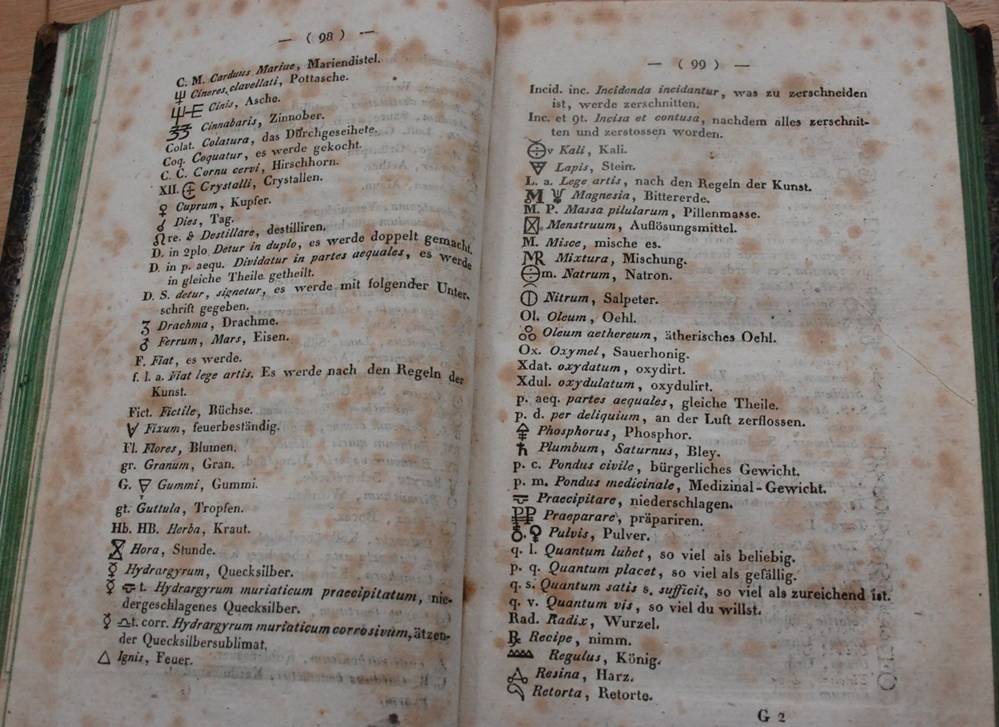 — ( 98 ) —
C. M. Carduus Mariae, Mariendistel.
Cineres clavellati, Pottasche.
Cinis, Asche.
Cinnabaris, Zinnober.
Colat. Colatura, das Durchgeseihete.
Coq. Coquatur, es werde gekocht.
C. C. Cornu cervi, Hirschhorn.
XII. Crystalli, Crystallen.
♀ Cuprum, Kupfer.
Dies, Tag.
re. Destillare, destilliren.
D. in 2plo Detur in duplo, es werde doppelt gemacht.
D. in p. aequ. Dividatur in partes aequales, es werde
in gleiche Theile getheilt.
D. S. detur, signetur, es werde mit folgender Unter-
schrift gegeben.
ʒ Drachma, Drachme.
♂ Ferrum, Mars, Eisen.
F. Fiat, es werde.
f. l. a. Fiat lege artis. Es werde nach den Regeln der
Kunst.
Fict. Fictile, Büchse.
Fixum, feuerbeständig.
Fl. Flores, Blumen.
gr. Granum, Gran.
G. Gummi, Gummi.
gt. Guttula, Tropfen.
Hb. HB. Herba, Kraut.
Hora, Stunde.
☿ Hydrargyrum, Quecksilber.
☿ t. Hydrargyrum muriaticum praecipitatum, nie-
dergeschlagenes Quecksilber.
☿ t. corr. Hydrargyrum muriaticum corrosivum, ätzen-
der Quecksilbersublimat.
△ Ignis, Feuer.
— ( 99 ) —
Incid. inc. Incidenda incidantur, was zu zerschneiden
ist, werde zerschnitten.
Inc. et gt. Incisa et contusa, nachdem alles zerschnit-
ten und zerstossen worden.
v Kali, Kali.
Lapis, Stein.
L. a. Lege artis, nach den Regeln der Kunst.
M Magnesia, Bittererde.
M. P. Massa pilularum, Pillenmasse.
Menstruum, Auflösungsmittel.
M. Misce, mische es.
Mixtura, Mischung.
m. Natrum, Natron.
Nitrum, Salpeter.
Ol. Oleum, Oehl.
Oleum aethereum, ätherisches Oehl.
Ox. Oxymel, Sauerhonig.
Xdat. oxydatum, oxydirt.
Xdul. oxydulatum, oxydulirt.
p. aeq. partes aequales, gleiche Theile.
p. d. per deliquium, an der Luft zerflossen.
Phosphorus, Phosphor.
♄ Plumbum, Saturnus, Bley.
p. c. Pondus civile, bürgerliches Gewicht.
p. m. Pondus medicinale, Medizinal-Gewicht.
Praecipitare, niederschlagen.
PP Praeparare, präpariren.
Pulvis, Pulver.
q. l. Quantum lubet, so viel als beliebig.
p. q. Quantum placet, so viel als gefällig.
q. s. Quantum satis s. sufficit, so viel als zureichend ist.
q. v. Quantum vis, so viel du willst.
Rad. Radix, Wurzel.
℞ Recipe, nimm.
Regulus, König.
Resina, Harz.
Retorta, Retorte.
G 2